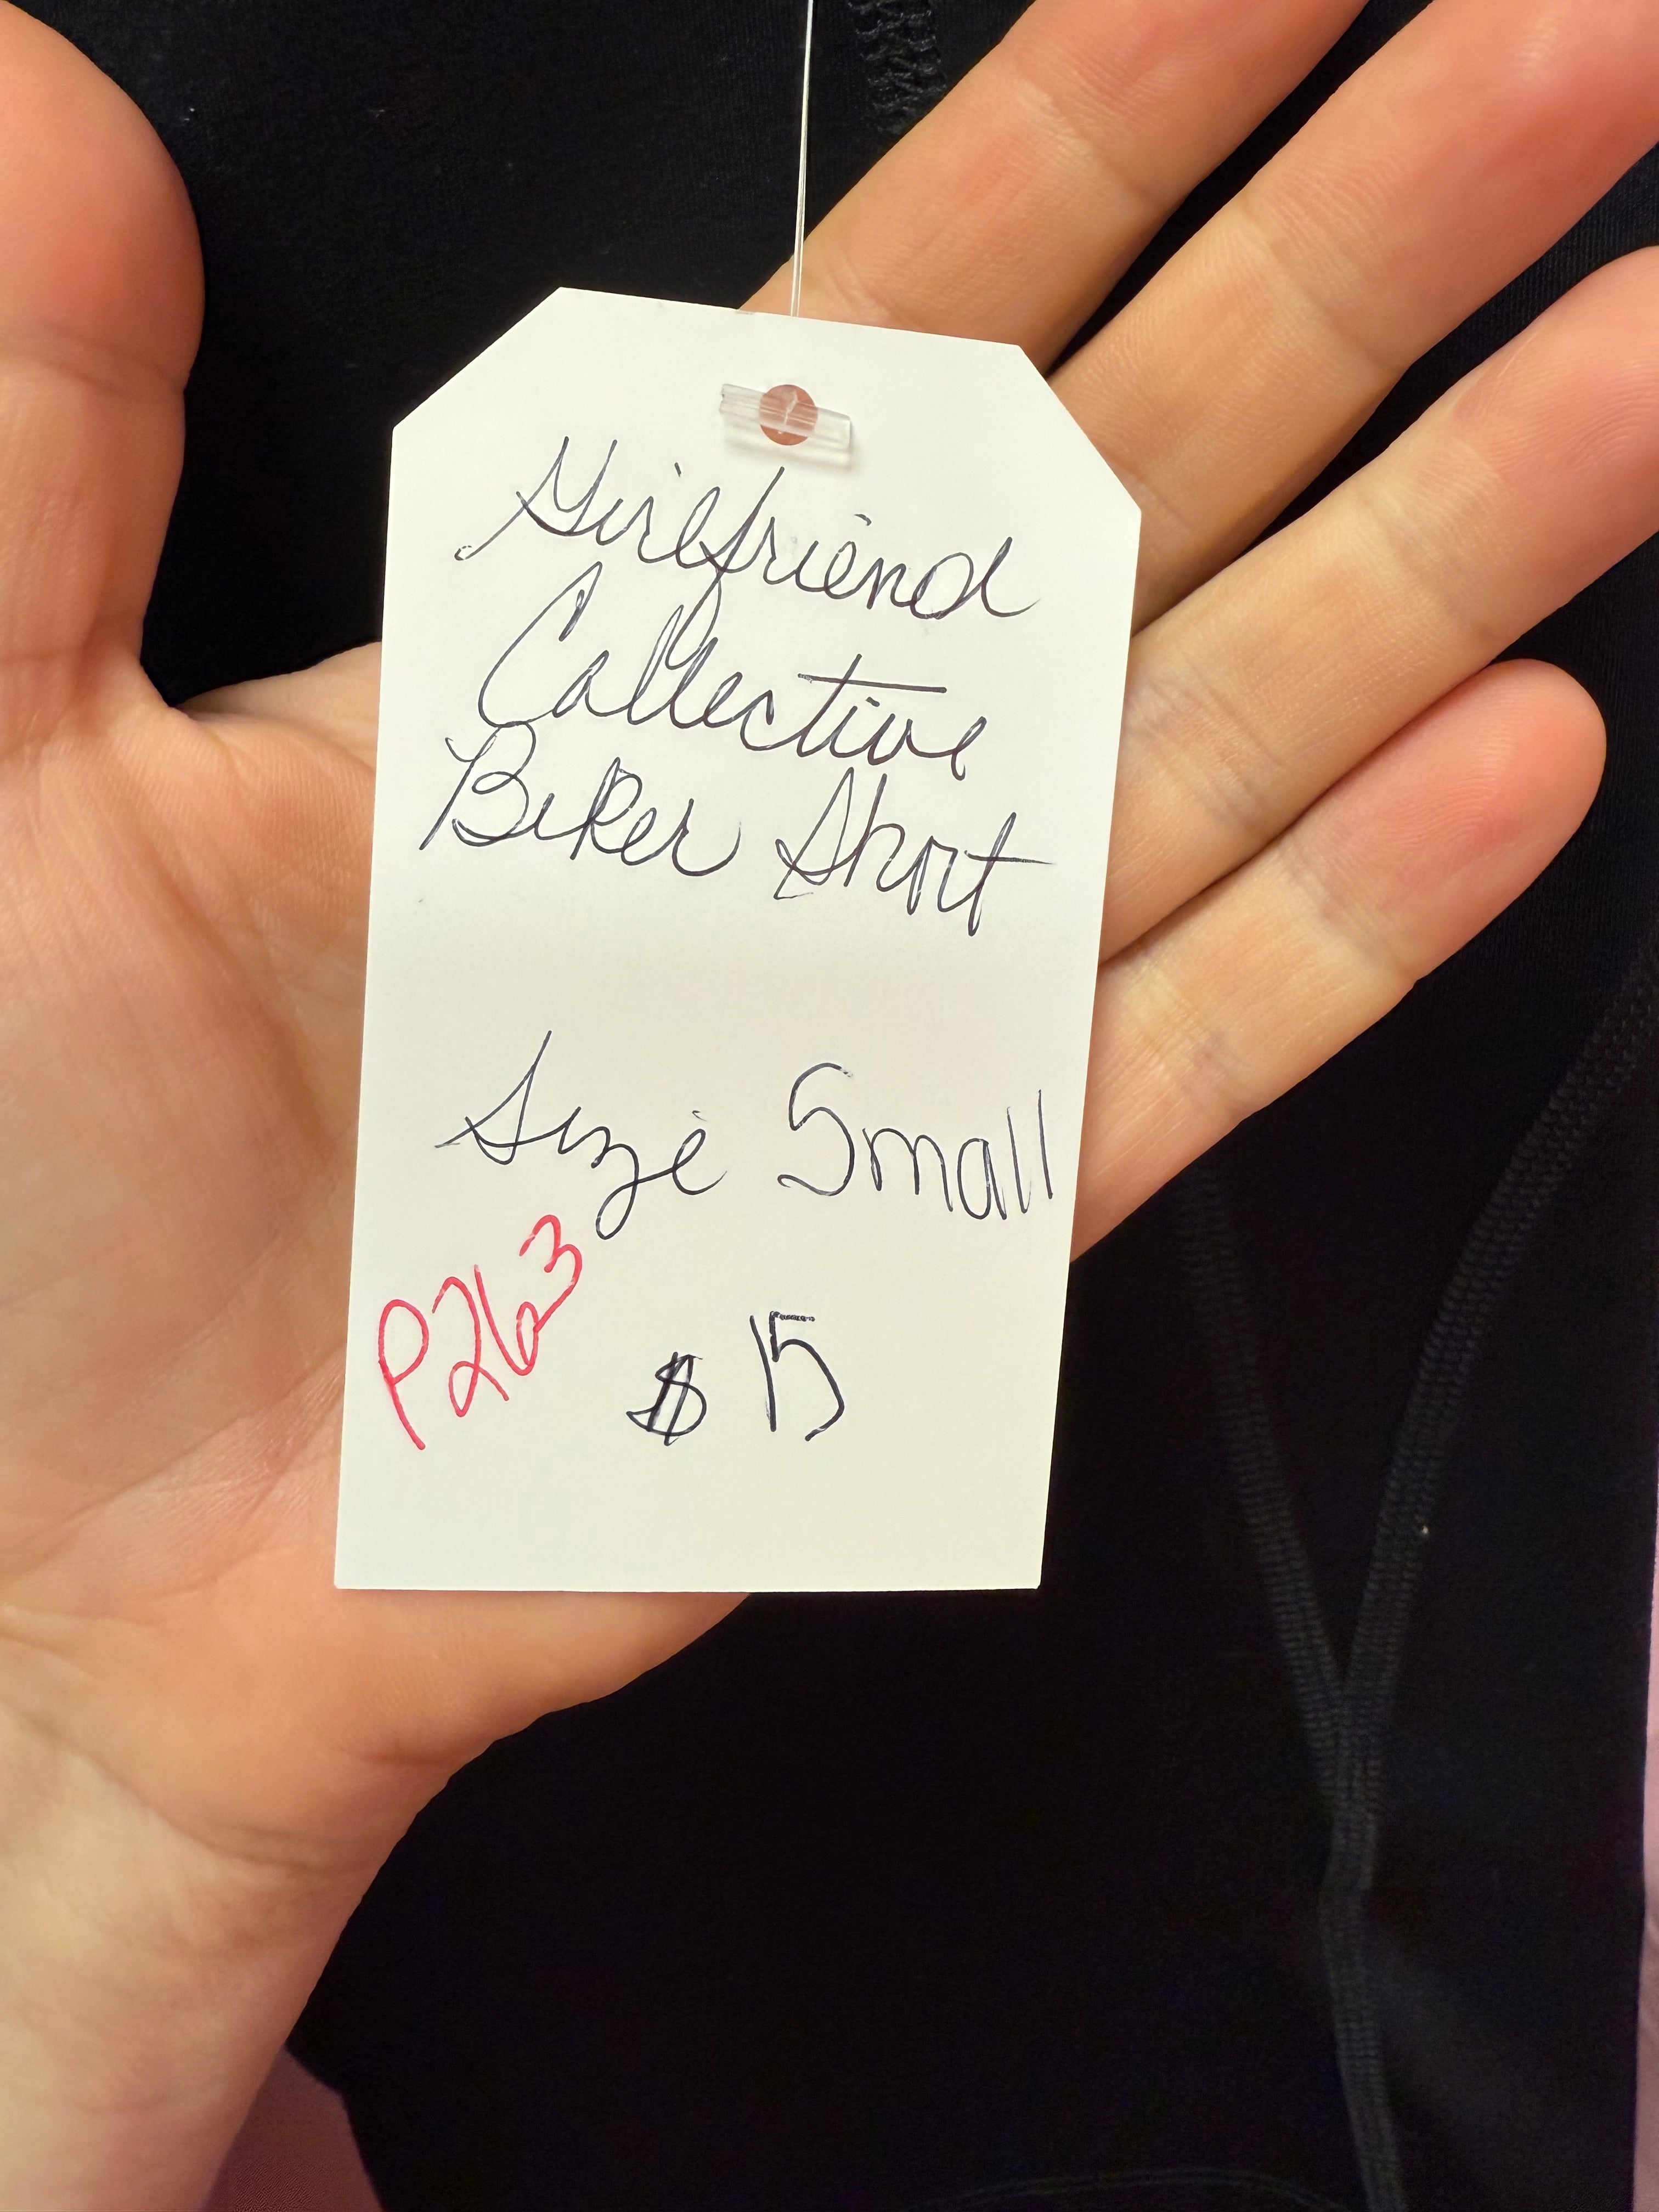 Girlfriend
Collective
Biker Short
Size Small
P263
$15